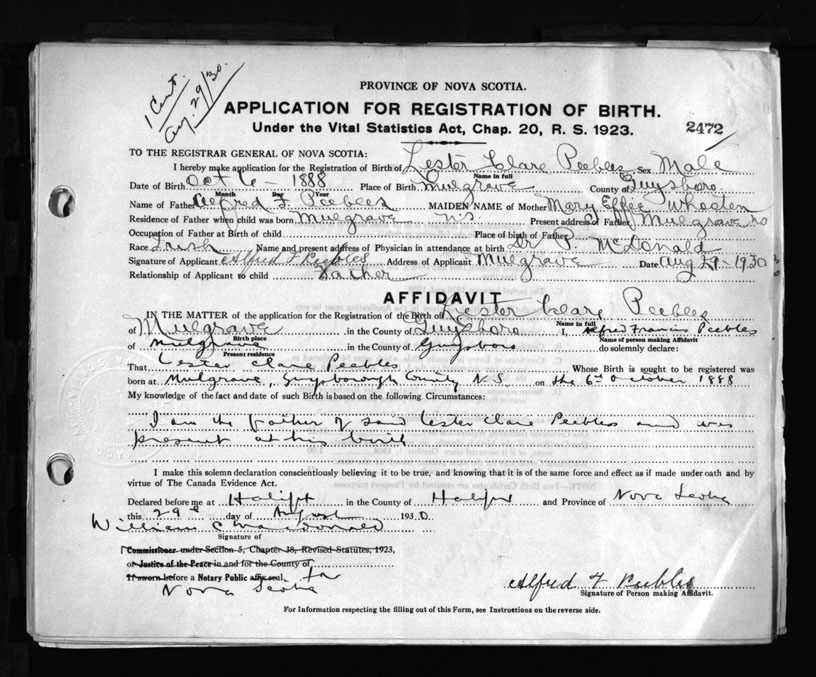 1 Cert.
Aug. 29/30.
PROVINCE OF NOVA SCOTIA.
APPLICATION FOR REGISTRATION OF BIRTH.
Under the Vital Statistics Act, Chap. 20, R. S. 1923.
2472
TO THE REGISTRAR GENERAL OF NOVA SCOTIA:
I hereby make application for the Registration of Birth of Lester Clare Peebles Sex Male
Name in full
Date of Birth Oct 6 - 1888 Place of Birth Mulgrave County of Guysboro
Month Day Year
Name of Father Alfred F Peebles MAIDEN NAME of Mother Mary Effie Wheaton
Residence of Father when child was born Mulgrave N S Present address of Father Mulgrave
Occupation of Father at Birth of child Place of birth of Father
Race Irish Name and present address of Physician in attendance at birth Dr P. McDonald
Signature of Applicant Alfred F Peebles Address of Applicant Mulgrave Date Aug 29 - 1930
Relationship of Applicant to child Father
AFFIDAVIT
IN THE MATTER of the application for the Registration of the Birth of Lester Clare Peebles
Name in full
of Mulgrave in the County of Guysboro I, Alfred Francis Peebles
Birth place Name of person making Affidavit
of Mulgrave in the County of Guysboro do solemnly declare:
Present residence
That Lester Clare Peebles Whose Birth is sought to be registered was
born at Mulgrave, Guysborough County N.S. on the 6th October 1888
My knowledge of the fact and date of such Birth is based on the following Circumstances:
I am the father of said Lester Clare Peebles and was
present at his birth
I make this solemn declaration conscientiously believing it to be true, and knowing that it is of the same force and effect as if made under oath and by
virtue of The Canada Evidence Act.
Declared before me at Halifax in the County of Halifax and Province of Nova Scotia
this 29th day of August 1930
William C Macdonald
Signature of
Commissioner under Section 5, Chapter 38, Revised Statutes, 1923,
or Justice of the Peace in and for the County of
If sworn before a Notary Public affix seal. for
Nova Scotia
Alfred F Peebles
Signature of Person making Affidavit.
For Information respecting the filling out of this Form, see Instructions on the reverse side.